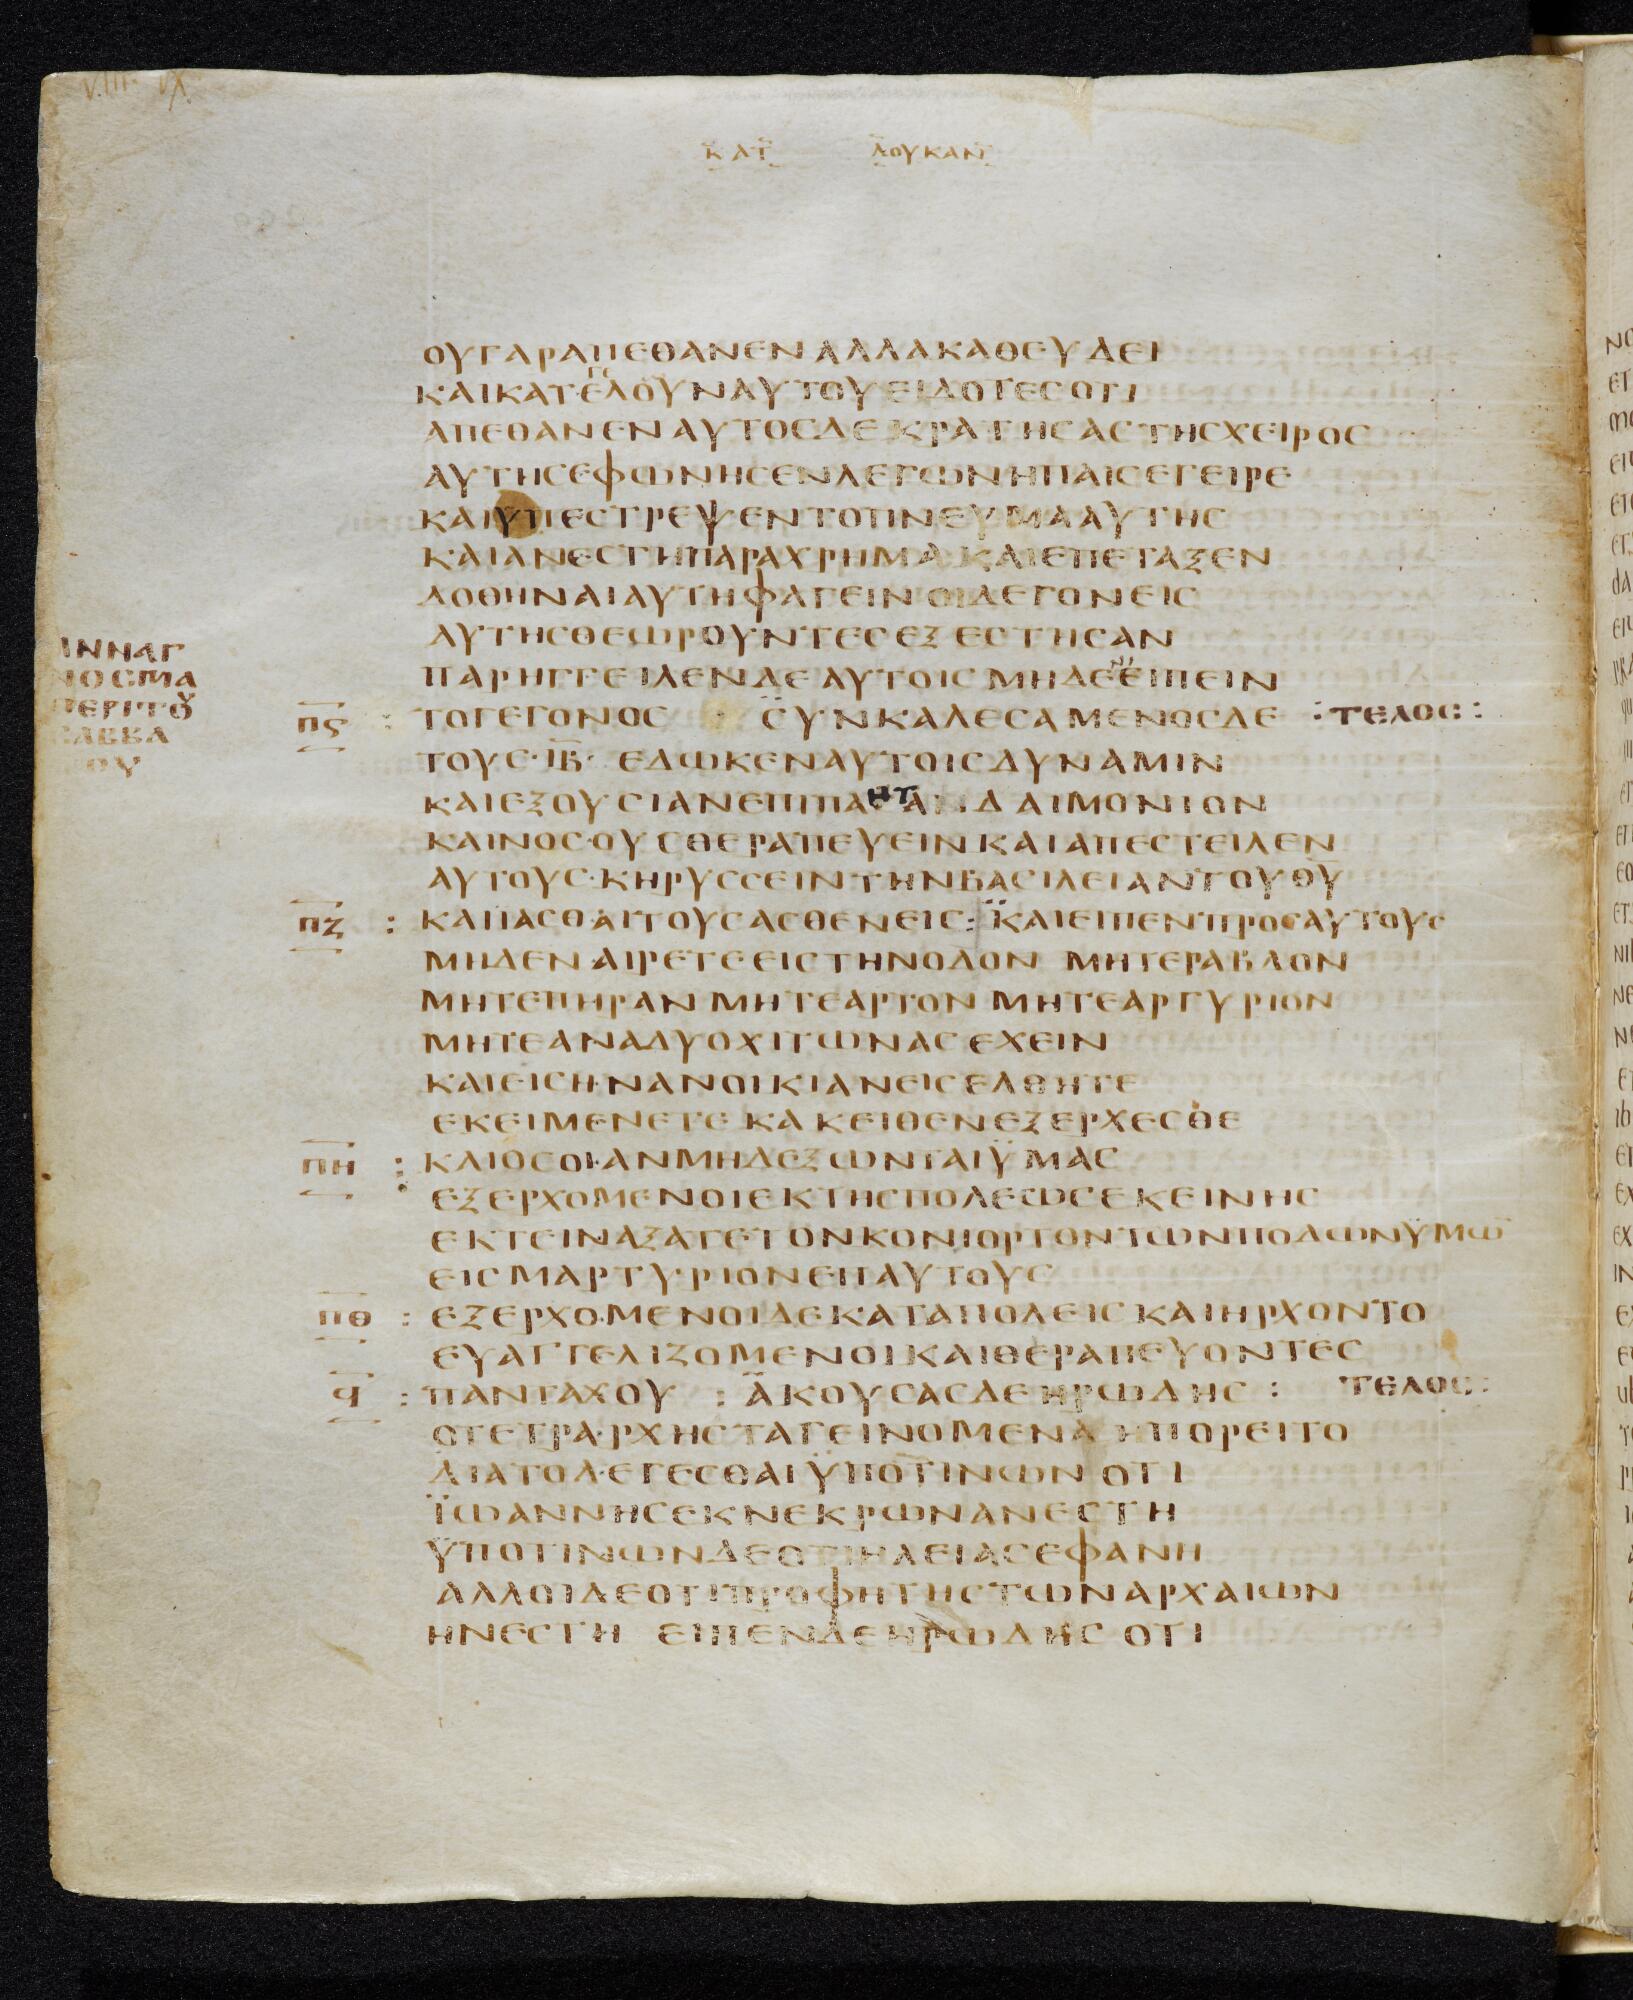 ΚΑΤ ΛΟΥΚΑΝ
ΟΥΓΑΡΑΠΕΘΑΝΕΝΑΛΛΑΚΑΘΕΥΔΕΙ
ΚΑΙΚΑΤΕΓΕΛΟΥΝΑΥΤΟΥΕΙΔΟΤΕΣΟΤΙ
ΑΠΕΘΑΝΕΝΑΥΤΟΣΔΕΚΡΑΤΗΣΑΣΤΗΣΧΕΙΡΟΣ
ΑΥΤΗΣΕΦΩΝΗΣΕΝΛΕΓΩΝΗΠΑΙΣΕΓΕΙΡΕ
ΚΑΙΥΠΕΣΤΡΕΨΕΝΤΟΠΝΕΥΜΑΑΥΤΗΣ
ΚΑΙΑΝΕΣΤΗΠΑΡΑΧΡΗΜΑΚΑΙΕΠΕΤΑΞΕΝ
ΔΟΘΗΝΑΙΑΥΤΗΦΑΓΕΙΝΟΙΔΕΓΟΝΕΙΣ
ΑΥΤΗΣΘΕΩΡΟΥΝΤΕΣΕΞΕΣΤΗΣΑΝ
ΠΑΡΗΓΓΕΙΛΕΝΔΕΑΥΤΟΙΣΜΗΔΕΝΙΕΙΠΕΙΝ
Π̅Ϛ̅ : ΤΟΓΕΓΟΝΟΣ ΣΥΝΚΑΛΕΣΑΜΕΝΟΣΔΕ :ΤΕΛΟΣ:
ΤΟΥΣ·Ι̅Β̅· ΕΔΩΚΕΝΑΥΤΟΙΣΔΥΝΑΜΙΝ
ΚΑΙΕΞΟΥΣΙΑΝΕΠΙΠΑ ΔΑΙΜΟΝΙΟΝ
ΚΑΙΝΟΣΟΥΣΘΕΡΑΠΕΥΕΙΝΚΑΙΑΠΕΣΤΕΙΛΕΝ
ΑΥΤΟΥΣ·ΚΗΡΥΣΣΕΙΝΤΗΝΒΑΣΙΛΕΙΑΝΤΟΥΘ̅Υ̅
Π̅Ζ̅ : ΚΑΙΙΑΣΘΑΙΤΟΥΣΑΣΘΕΝΕΙΣ: ΚΑΙΕΙΠΕΝΠΡΟΣΑΥΤΟΥΣ
ΜΗΔΕΝΑΙΡΕΤΕΕΙΣΤΗΝΟΔΟΝ ΜΗΤΕΡΑΒΔΟΝ
ΜΗΤΕΠΗΡΑΝΜΗΤΕΑΡΤΟΝ ΜΗΤΕΑΡΓΥΡΙΟΝ
ΜΗΤΕΑΝΑΔΥΟΧΙΤΩΝΑΣΕΧΕΙΝ
ΚΑΙΕΙΣΗΝΑΝΟΙΚΙΑΝΕΙΣΕΛΘΗΤΕ
ΕΚΕΙΜΕΝΕΤΕΚΑΚΕΙΘΕΝΕΞΕΡΧΕΣΘΕ
Π̅Η̅ : ΚΑΙΟΣΟΙΑΝΜΗΔΕΞΩΝΤΑΙΫΜΑΣ
ΕΞΕΡΧΟΜΕΝΟΙΕΚΤΗΣΠΟΛΕΩΣΕΚΕΙΝΗΣ
ΕΚΤΕΙΝΑΞΑΤΕΤΟΝΚΟΝΙΟΡΤΟΝΤΩΝΠΟΔΩΝΫΜΩ̅
ΕΙΣΜΑΡΤΥΡΙΟΝΕΠΑΥΤΟΥΣ
Π̅Θ̅ : ΕΞΕΡΧΟΜΕΝΟΙΔΕΚΑΤΑΠΟΛΕΙΣΚΑΙΗΡΧΟΝΤΟ
ΕΥΑΓΓΕΛΙΖΟΜΕΝΟΙΚΑΙΘΕΡΑΠΕΥΟΝΤΕΣ
Ϥ̅ : ΠΑΝΤΑΧΟΥ : ΑΚΟΥΣΑΣΔΕΗΡΩΔΗΣ : ΤΕΛΟΣ:
ΟΤΕΤΡΑΡΧΗΣΤΑΓΕΙΝΟΜΕΝΑΗΠΟΡΕΙΤΟ
ΔΙΑΤΟΛΕΓΕΣΘΑΙΫΠΟΤΙΝΩΝΟΤΙ
ΪΩΑΝΝΗΣΕΚΝΕΚΡΩΝΑΝΕΣΤΗ
ΫΠΟΤΙΝΩΝΔΕΟΤΙΗΛΕΙΑΣΕΦΑΝΗ
ΑΛΛΟΙΔΕΟΤΙΠΡΟΦΗΤΗΣΤΩΝΑΡΧΑΙΩΝ
ΗΝΕΣΤΗ ΕΙΠΕΝΔΕΗΡΩΔΗΣ ΟΤΙ